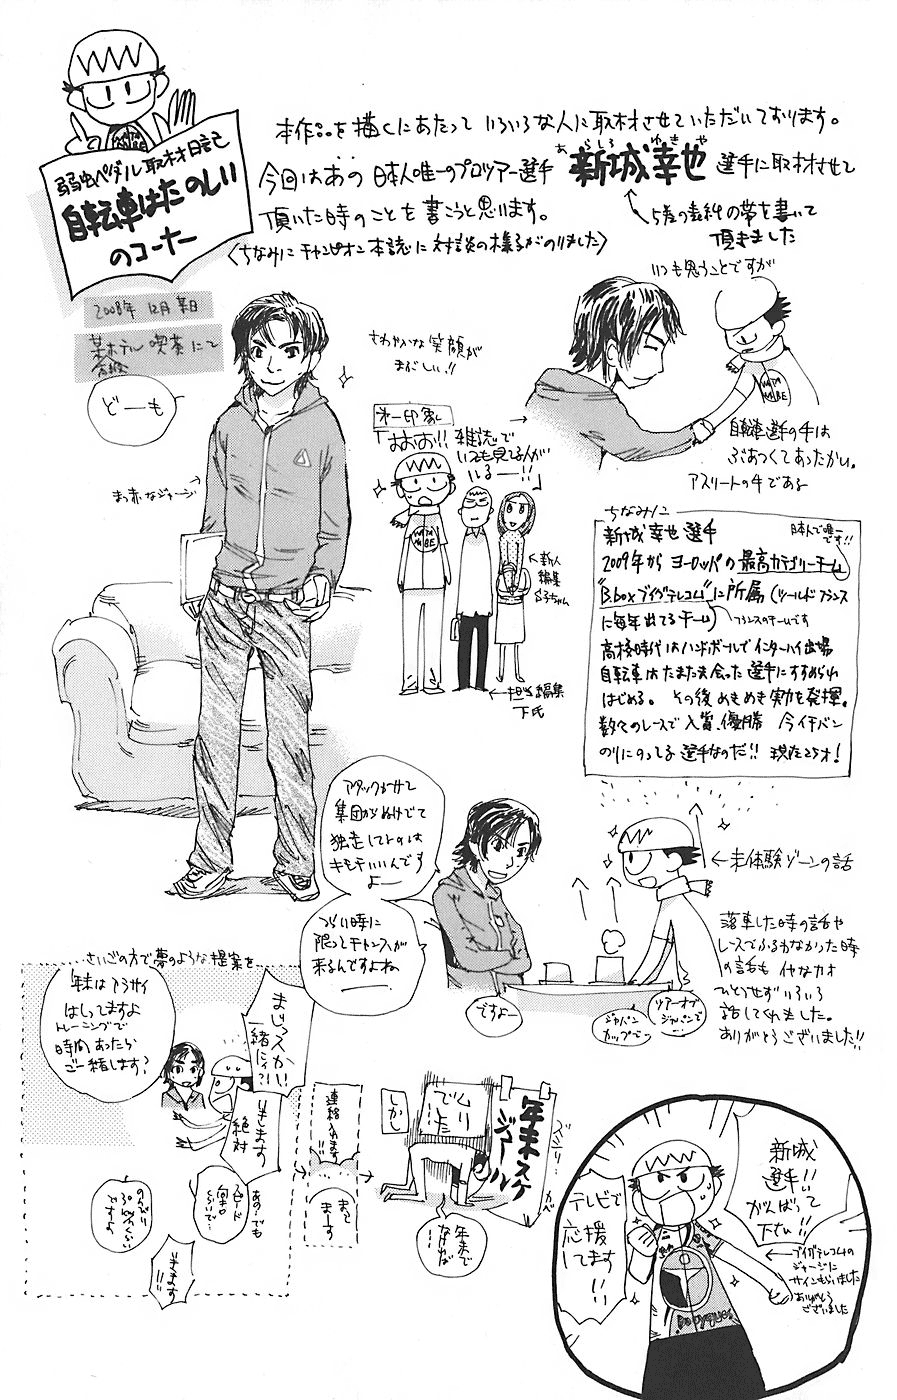 弱虫ペダル取材日記
自転車はたのしい
のコーナー
本作品を描くにあたって いろいろな人に取材させていただいております。
今回はあの 日本人唯一のプロツアー選手 新城幸也 選手に取材させて
あらしろ ゆきや
頂いた時のことを書こうと思います。
〈ちなみにチャンピオン本誌に対談の様子がのりました〉
5巻の表紙の帯を書いて
頂きました
2008年 12月 某日
某ホテル 喫茶にて
どーも
さわやかな笑顔が
まぶしい!!
まっ赤なジャージ
第一印象
「おおお!! 雑誌で
いつも見てる人が
いるー!!」
新人
編集
担当編集
下氏
いつも思うことですが
自転車選手の手は
ぶあつくてあったかい。
アスリートの手である
ちなみに
新城幸也選手
日本人で唯一
です!!
2009年から ヨーロッパの最高カテゴリーチーム
"Bboxブイグテレコム"に所属(ツールドフランス
に毎年出てるチーム)
フランスのチームです
高校時代はハンドボールでインターハイ出場
自転車はたまたま会った選手にすすめられ
はじめる。 その後めきめき実力を発揮。
数々のレースで入賞、優勝 今イチバン
のりにのってる選手なのだ!! 現在25才!
アタックかけて
集団からぬけでて
独走してるのは
キモチいいんです
よー
つらい時に
限ってチャンスが
来るんですよね
ー
ですよー
ジャパン
カップでー
ツアーオブ
ジャパンでー
未体験ゾーンの話
落車した時の話や
レースでふるわなかった時
の話も イヤなカオ
ひとつせず いろいろ
話してくれました。
ありがとうございました!!
さいごの方で夢のような提案を
年末はアラサイ
はしってますよ
トレーニングで
時間あったら
ご一緒します?
まじっスかい
一緒に?!
いきます
絶対
あのでも
スピード
のんびり
30kmくらい
ですよ
いきます
!!
連絡入れます
!!
まって
まーす
しかし
ムリ
でした
年末スケ
ジュール
年末で
新城
選手!!
がんばって
下さい!!
テレビで
応援
してます
!!
ブイグテレコムの
ジャージに
サインもらいました
ありがとう
ございました